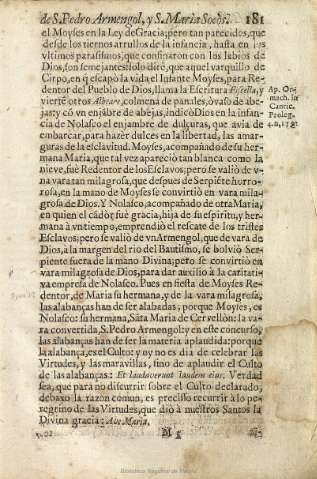 de S. Pedro Armengol, y S. Maria Socòs. 181
el Moyses en la Ley de Gracia; pero tan parecidos, que
desde los tiernos arrullos de la infancia, hasta en los
vltimos parasismos, que consinaron con los labios de
Dios, son semejantes! solo diré, que aquel varquillo de
Cirpo, en q̃ escapò la vida el Infante Moyses, para Re-
dentor del Pueblo de Dios, llama la Escritura Fiscella, y
vierte otros Alveare, colmena de panales, ò vaso de abe-
jas; y cò vn enjabre de abejas, indicò Dios en la infan-
cia de Nolasco el enjambre de dulçuras, que avia de
embarcar, para hazer dulces en la libertad, las amar-
guras de la esclavitud. Moyses, acompañado de su her-
mana Maria, que tal vez apareciò tan blanca como la
nieve, fue Redentor de los Esclavos; pero se valiò de v-
na vara tan milagrosa, que despues de Serpiẽte horro-
rosa, en la mano de Moyses se convirtiò en vara mila-
grosa de Dios. Y Nolasco, acompañado de otra Maria,
en quien el cãdor fue gracia, hija de su espiritu, y her-
mana à vn tiempo, emprendiò el rescate de los tristes
Esclavos; pero se valiò de vn Armengol, que de vara de
Dios, à la margen del rio del Bautismo, se bolviò Ser-
piente fuera de la mano Divina; pero se convirtiò en
vara milagrosa de Dios, para dar auxilio à la caritati-
va empresa de Nolasco. Pues en fiesta de Moyses Re-
dentor, de Maria su hermana, y de la vara milagrosa,
las alabanças han de ser alternadas, porque Moyses, es
Nolasco: su hermana, Sãta Maria de Cervellòn: la va-
ra convertida, S. Pedro Armengol: y en este concurso,
las alabanças han de ser la materia aplaudida: porque
la alabança, es el Culto: y oy no es dia de celebrar las
Virtudes, y las maravillas, sino de aplaudir el Culto
de las alabanças: Et laudaverunt laudem eius. Verdad
sea, que para no discurrir sobre el Culto declarado,
debaxo la razon comun, es preciso recurrir à lo pe-
regrino de las Virtudes, que diò à nuestros Santos la
Divina gracia: Ave Maria.
M 5
Ap. Or-
mach. in
Cantic.
Proleg.
4. n. 179.